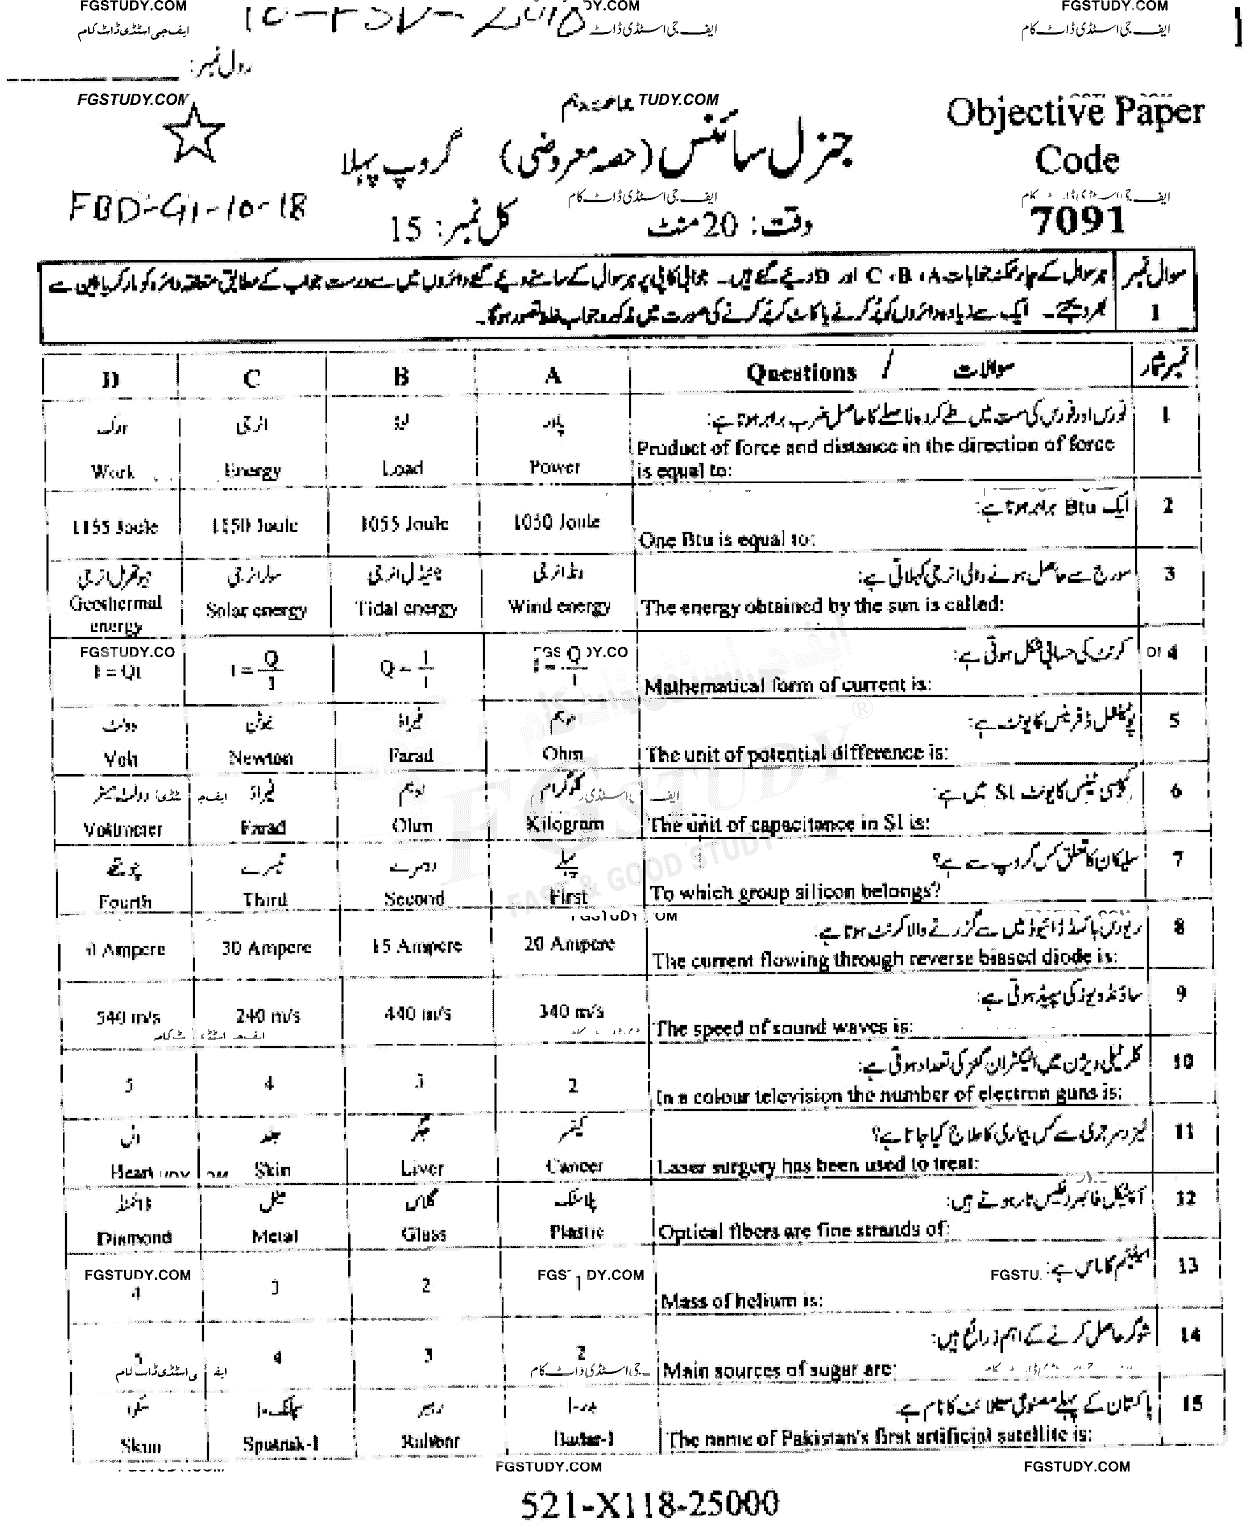 FGSTUDY.COM DY.COM FGSTUDY.COM
ایف جی اسٹڈی ڈاٹ کام ایف جی اسٹڈی ڈاٹ کام ایف جی اسٹڈی ڈاٹ کام
رول نمبر:
FGSTUDY.COM TUDY.COM
Objective Paper
جنرل سائنس (حصہ معروضی) گروپ پہلا
Code
FBD-G1-10-18
ایف جی اسٹڈی ڈاٹ کام
7091
وقت: 20 منٹ کل نمبر: 15
سوال نمبر 1
ہر سوال کے چار ممکنہ جوابات A، B، C اور D دیئے گئے ہیں۔ جوابی کاپی پر ہر سوال کے سامنے دیئے گئے دائروں میں سے درست جواب کے مطابق متعلقہ دائرہ کو مارکر یا پین سے
بھر دیجئے۔ ایک سے زیادہ دائروں کو پُر کرنے یا کاٹ کر پُر کرنے کی صورت میں مذکورہ جواب غلط تصور ہوگا۔
D C B A Questions / سوالات نمبر شمار
1 فورس اور فورس کی سمت میں طے کردہ فاصلے کا حاصل ضرب برابر ہوتا ہے:
ورک انرجی لوڈ پاور
Product of force and distance in the direction of force
is equal to:
Work Energy Load Power
2 ایک Btu برابر ہوتا ہے:
One Btu is equal to:
1155 Joule 1150 Joule 1055 Joule 1050 Joule
3 سورج سے حاصل ہونے والی انرجی کہلاتی ہے:
جیوتھرمل انرجی سولر انرجی ٹائیڈل انرجی ونڈ انرجی
The energy obtained by the sun is called:
Geothermal energy Solar energy Tidal energy Wind energy
4 کرنٹ کی حسابی شکل ہوتی ہے:
FGSTUDY.CO
Mathematical form of current is:
5 پوٹینشل ڈفرینس کا یونٹ ہے:
وولٹ نیوٹن فیراڈ اوہم
The unit of potential difference is:
Volt Newton Farad Ohm
6 کپیسی ٹینس کا یونٹ SI میں ہے:
وولٹ میٹر فیراڈ اوہم کلوگرام
The unit of capacitance in SI is:
Voltmeter Farad Ohm Kilogram
7 سلیکان کا تعلق کس گروپ سے ہے؟
چوتھے تیسرے دوسرے پہلے
To which group silicon belongs?
Fourth Third Second First
FGSTUDY
FAST & GOOD STUDY
8 ریورس بائسڈ ڈائیوڈ میں سے گزرنے والا کرنٹ ہوتا ہے:
The current flowing through reverse biased diode is:
Ampere 30 Ampere 15 Ampere 20 Ampere
9 ساؤنڈ ویوز کی سپیڈ ہوتی ہے:
The speed of sound waves is:
540 m/s 240 m/s 440 m/s 340 m/s
10 کلر ٹیلی ویژن میں الیکٹران گنز کی تعداد ہوتی ہے:
In a colour television the number of electron guns is:
5 4 3 2
11 لیزر سرجری سے کس بیماری کا علاج کیا جاتا ہے؟
دل جلد جگر کینسر
Laser surgery has been used to treat:
Heart Skin Liver Cancer
12 آپٹیکل فائبر نفیس تار ہوتے ہیں:
ڈائمنڈ میٹل گلاس پلاسٹک
Optical fibers are fine strands of:
Diamond Metal Glass Plastic
13 ہیلیئم کا ماس ہے:
FGSTUDY.COM
Mass of helium is:
4 3 2 1
14 شوگر حاصل کرنے کے اہم ذرائع ہیں:
Main sources of sugar are:
5 4 3 2
15 پاکستان کے پہلے مصنوعی سیٹلائٹ کا نام ہے:
سپٹنک-1 رہبر بدر-1
The name of Pakistan's first artificial satellite is:
Sputnik-1 Rahbar Badar-1
FGSTUDY.COM FGSTUDY.COM
521-X118-25000